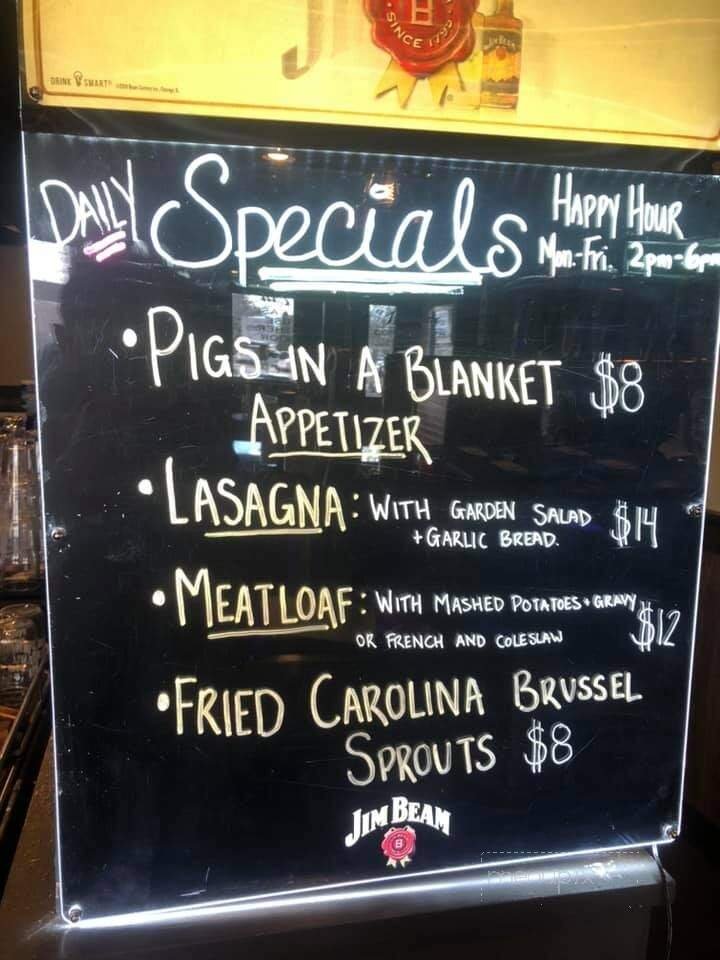 SINCE 1795
DRINK SMART
DAILY Specials
HAPPY HOUR
Mon.-Fri. 2pm-6pm
• PIGS IN A BLANKET $8
APPETIZER
• LASAGNA: WITH GARDEN SALAD $14
+ GARLIC BREAD.
• MEATLOAF: WITH MASHED POTATOES + GRAVY $12
OR FRENCH AND COLESLAW
• FRIED CAROLINA BRUSSEL
SPROUTS $8
JIM BEAM
B